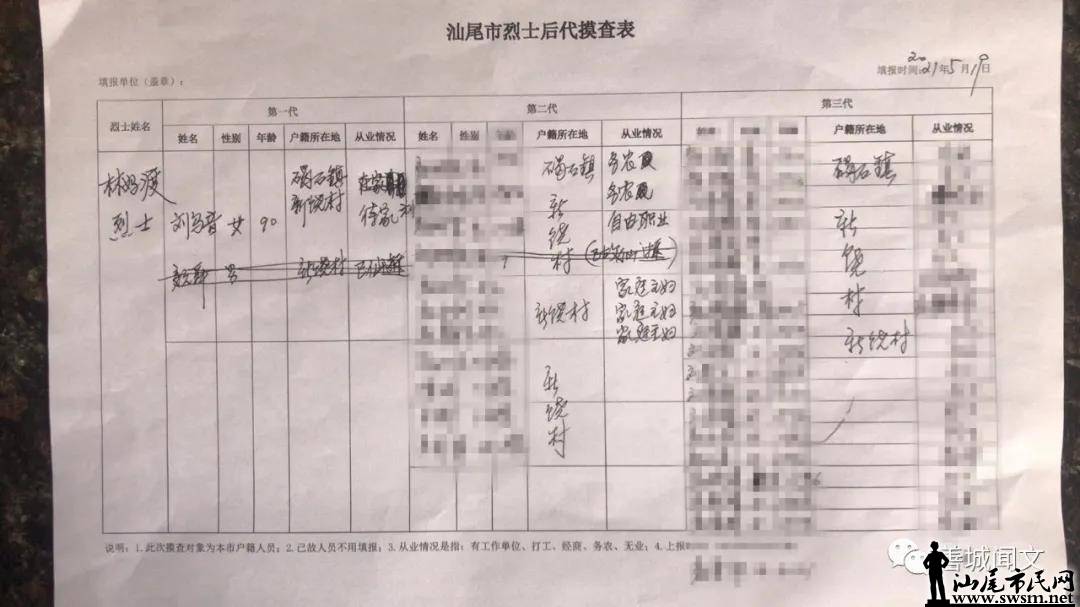 汕尾市烈士后代摸查表
填报单位（盖章）：
填报时间：2021年5月19日
烈士姓名 第一代 第二代 第三代
姓名 性别 年龄 户籍所在地 从业情况 姓名 性别 户籍所在地 从业情况 户籍所在地 从业情况
林妈渡
烈士
刘乌音 女 90
碣石镇
新饶村
在家
待家
碣石镇
新
饶
村
务农
务农
自由职业
新饶村
家庭主妇
家庭主妇
家庭主妇
新
饶
村
碣石镇
新
饶
村
新饶村
新饶村
说明：1.此次摸查对象为本市户籍人员；2.已故人员不用填报；3.从业情况是指：有工作单位、打工、经商、务农、无业；4.上报
善城闻文
汕尾市民网
www.swsm.net